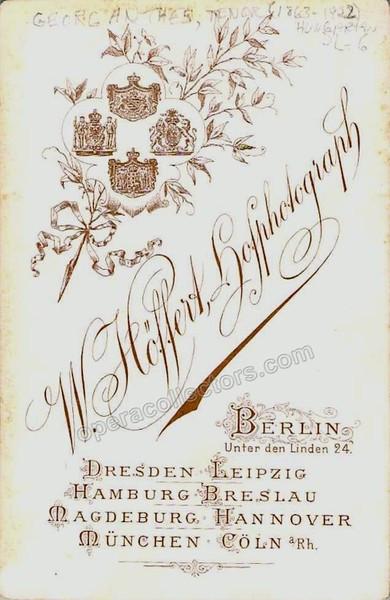 GEORG ANTHES, TENOR (1863-1922)
HUNGARIAN
W. Höffert, Hofphotograph
operacollectors.com
BERLIN
Unter den Linden 24.
DRESDEN · LEIPZIG
HAMBURG · BRESLAU
MAGDEBURG, HANNOVER
MÜNCHEN · CÖLN a/Rh.